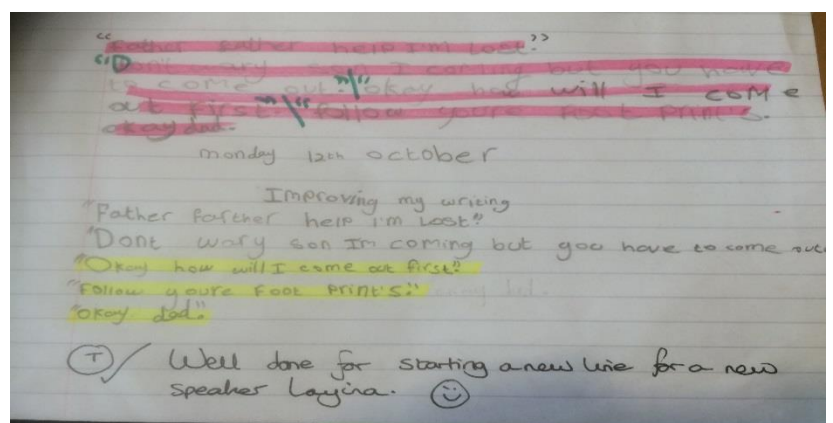 "Father father help I'm Lost."
"Dont wary son I coming but you have
to come out."\"okay how will I come
out first."\"follow youre foot Print's.
okay dad.
monday 12th october
Improving my writing
"Father farther help i'm Lost."
"Dont wary son Im coming but you have to come out
"Okay how will I come out first."
"Follow youre Foot Print's."
"okay dad."
T ✓ Well done for starting a new line for a new
speaker Layina. ☺